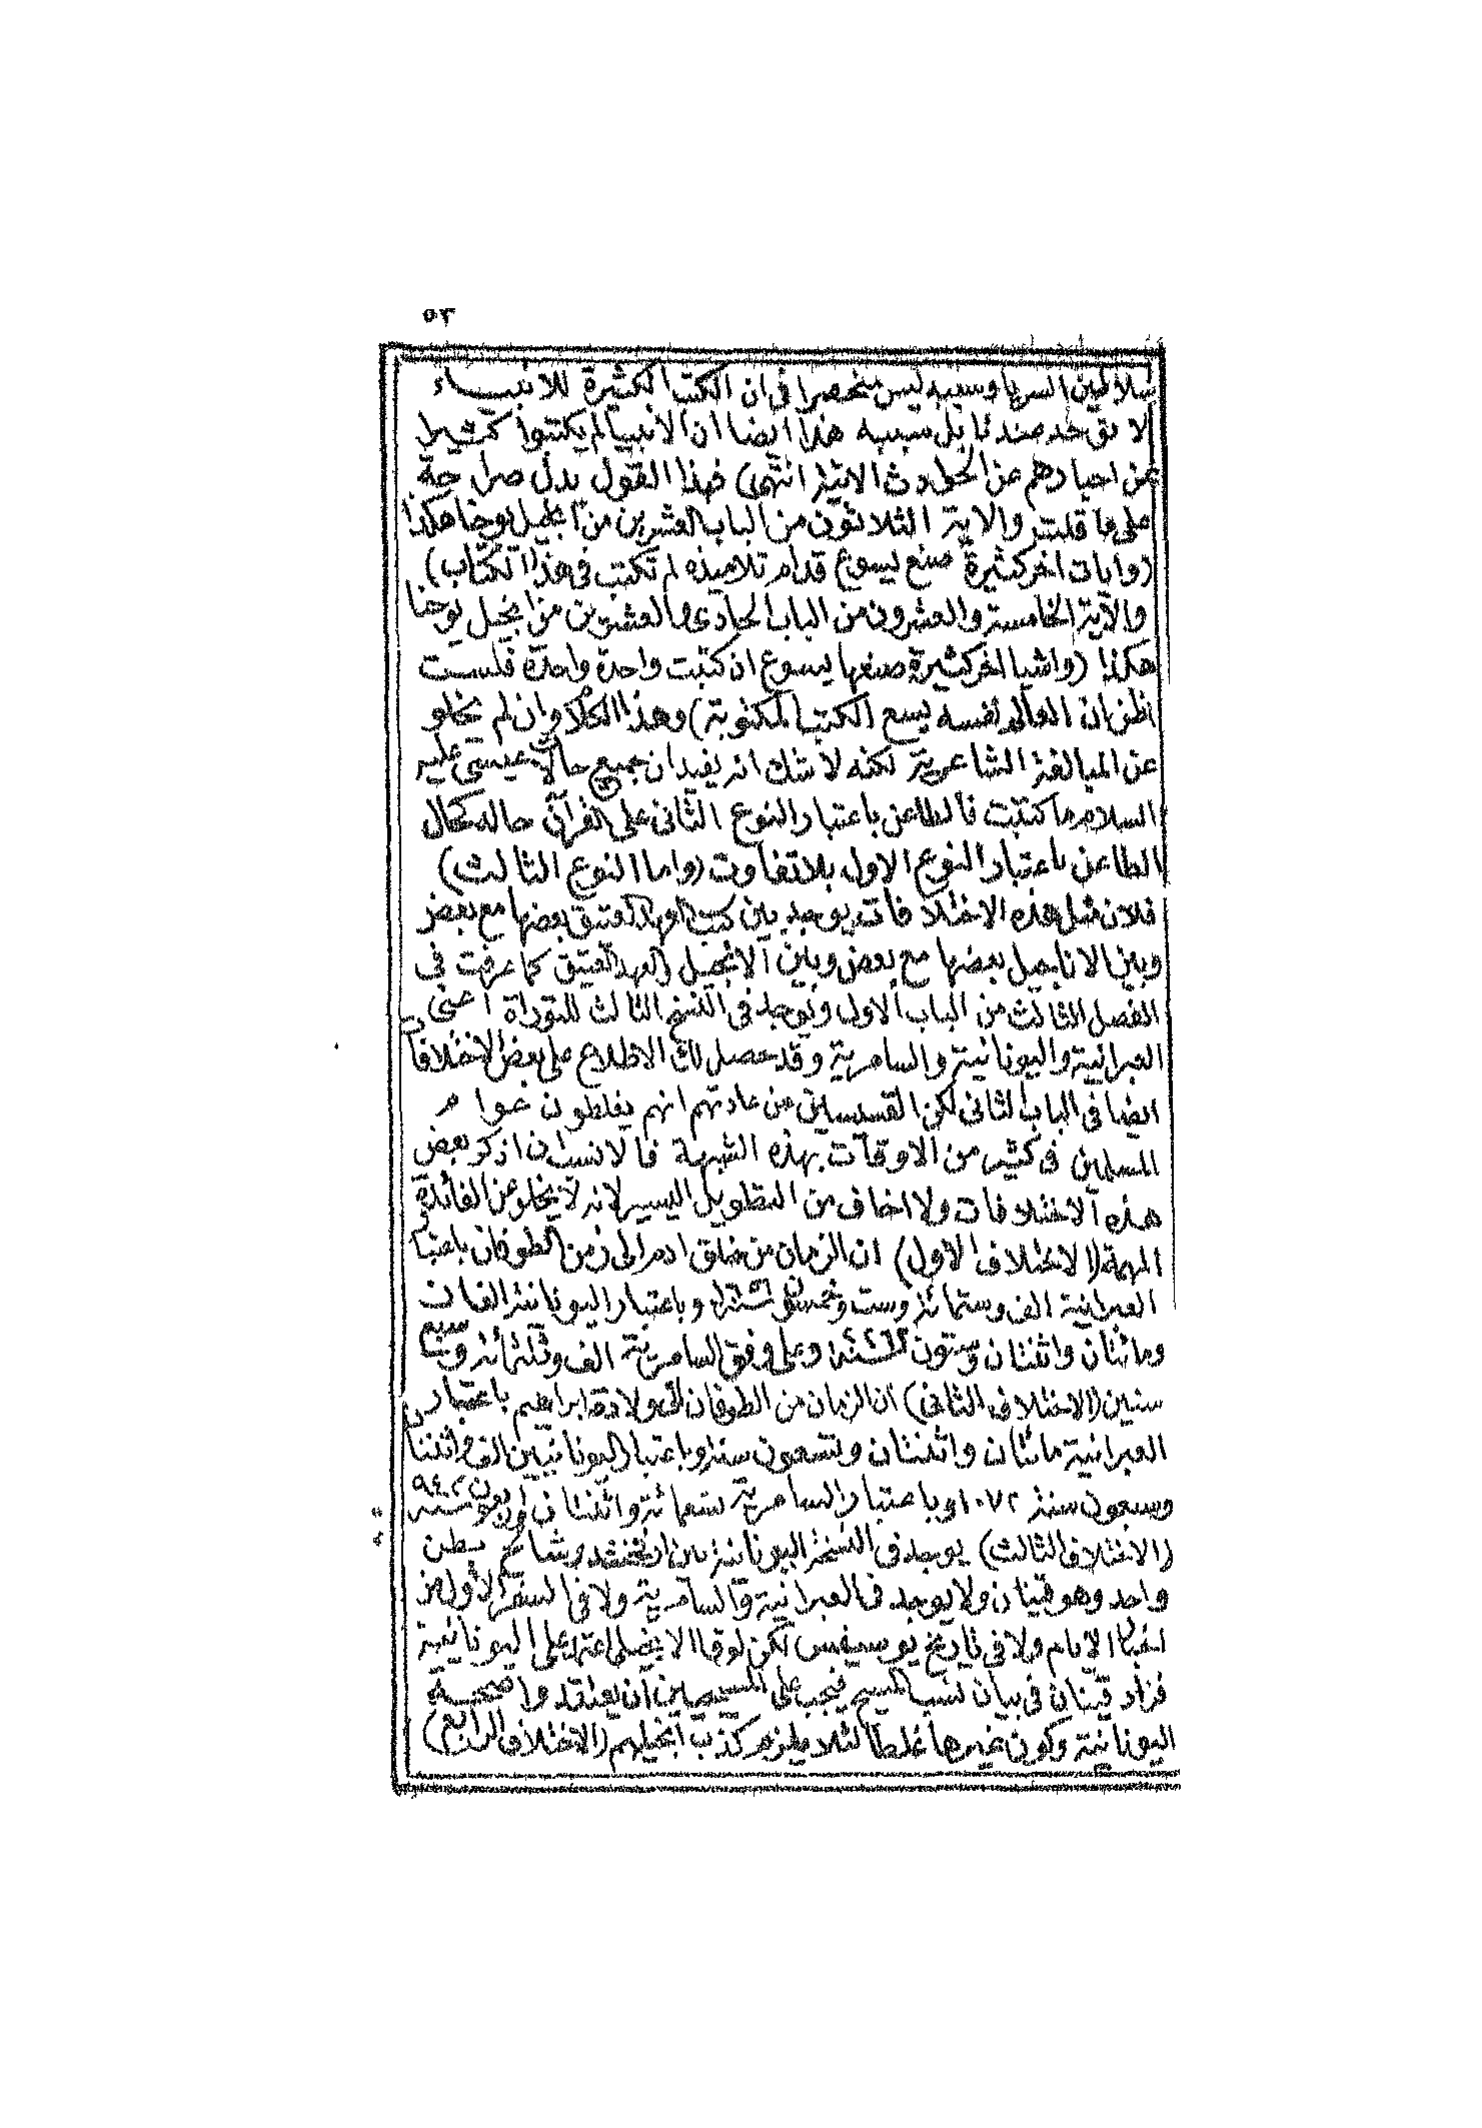 ٥٣
سلاطين السريا وسببه ليس منحصرا فى ان الكتب الكثيرة للانبياء
لا توجد عندنا بل سببه هذا ايضا ان الانبيا لم يكتبوا كثيرا
من اخبارهم عن الحوادث الاتية انتهى) فهذا القول يدل صراحة
على ما قلت والاية الثلاثون من الباب العشرين من انجيل يوحنا هكذا
(وايات اخر كثيرة صنع يسوع قدام تلاميذه لم تكتب فى هذا الكتاب)
والاية الخامسة والعشرون من الباب الحادى والعشرين من انجيل يوحنا
هكذا (واشيا اخر كثيرة صنعها يسوع ان كتبت واحدة واحدة فلست
اظن ان العالم نفسه يسع الكتب المكتوبة) وهذا الكلام وان لم يخلو
عن المبالغة الشاعرية لكنه لا شك انه يفيد ان جميع حالات عيسى عليه
السلام ما كتبت فالطاعن باعتبار النوع الثانى على القرآن حاله كحال
الطاعن باعتبار النوع الاول بلا تفاوت (واما النوع الثالث)
فلان مثل هذه الاختلافات يوجد بين كتب العهد العتيق بعضها مع بعض
وبين الاناجيل بعضها مع بعض وبين الانجيل والعهد العتيق كما عرفت فى
الفصل الثالث من الباب الاول ويوجد فى النسخ الثالث للتوراة اعنى
العبرانية واليونانية والسامرية وقد حصل لك الاطلاع على بعض الاختلافات
ايضا فى الباب الثانى لكن القسيسين من عادتهم انهم يغلطون عوام
المسلمين فى كثير من الاوقات بهذه الشبهة فالانسب ان اذكر بعض
هذه الاختلافات ولا اخاف من التطويل اليسير لانه لا يخلو عن الفائدة
المهمة (الاختلاف الاول) ان الزمان من خلق ادم الى زمن الطوفان باعتبار
العبرانية الف وستمائة وست وخمسون سنة ١٦٥٦ وباعتبار اليونانية الفان
ومائتان واثنتان وستون سنة ٢٢٦٢ وعلى وفق السامرية الف وثلثمائة وسبع
سنين (الاختلاف الثانى) ان الزمان من الطوفان الى ولادة ابراهيم باعتبار
العبرانية مائتان واثنتان وتسعون سنة وباعتبار اليونانيين الف واثنتان
وسبعون سنة ١٠٧٢ وباعتبار السامرية تسعمائة واثنتان اربعون سنة ٩٤٢
(الاختلاف الثالث) يوجد فى النسخة اليونانية بين ارفخشد وشالح بطن
واحد وهو قينان ولا يوجد فى العبرانية والسامرية ولا فى السفر الاول من
اخبار الايام ولا فى تاريخ يوسيفس لكن لوقا الانجيلى اعتمد على اليونانية
فزاد قينان فى بيان نسب المسيح فيجب على المسيحيين ان يعتقدوا صحة
اليونانية وكون غيرها غلطا لئلا يلزم كذب انجيلهم (الاختلاف الرابع)